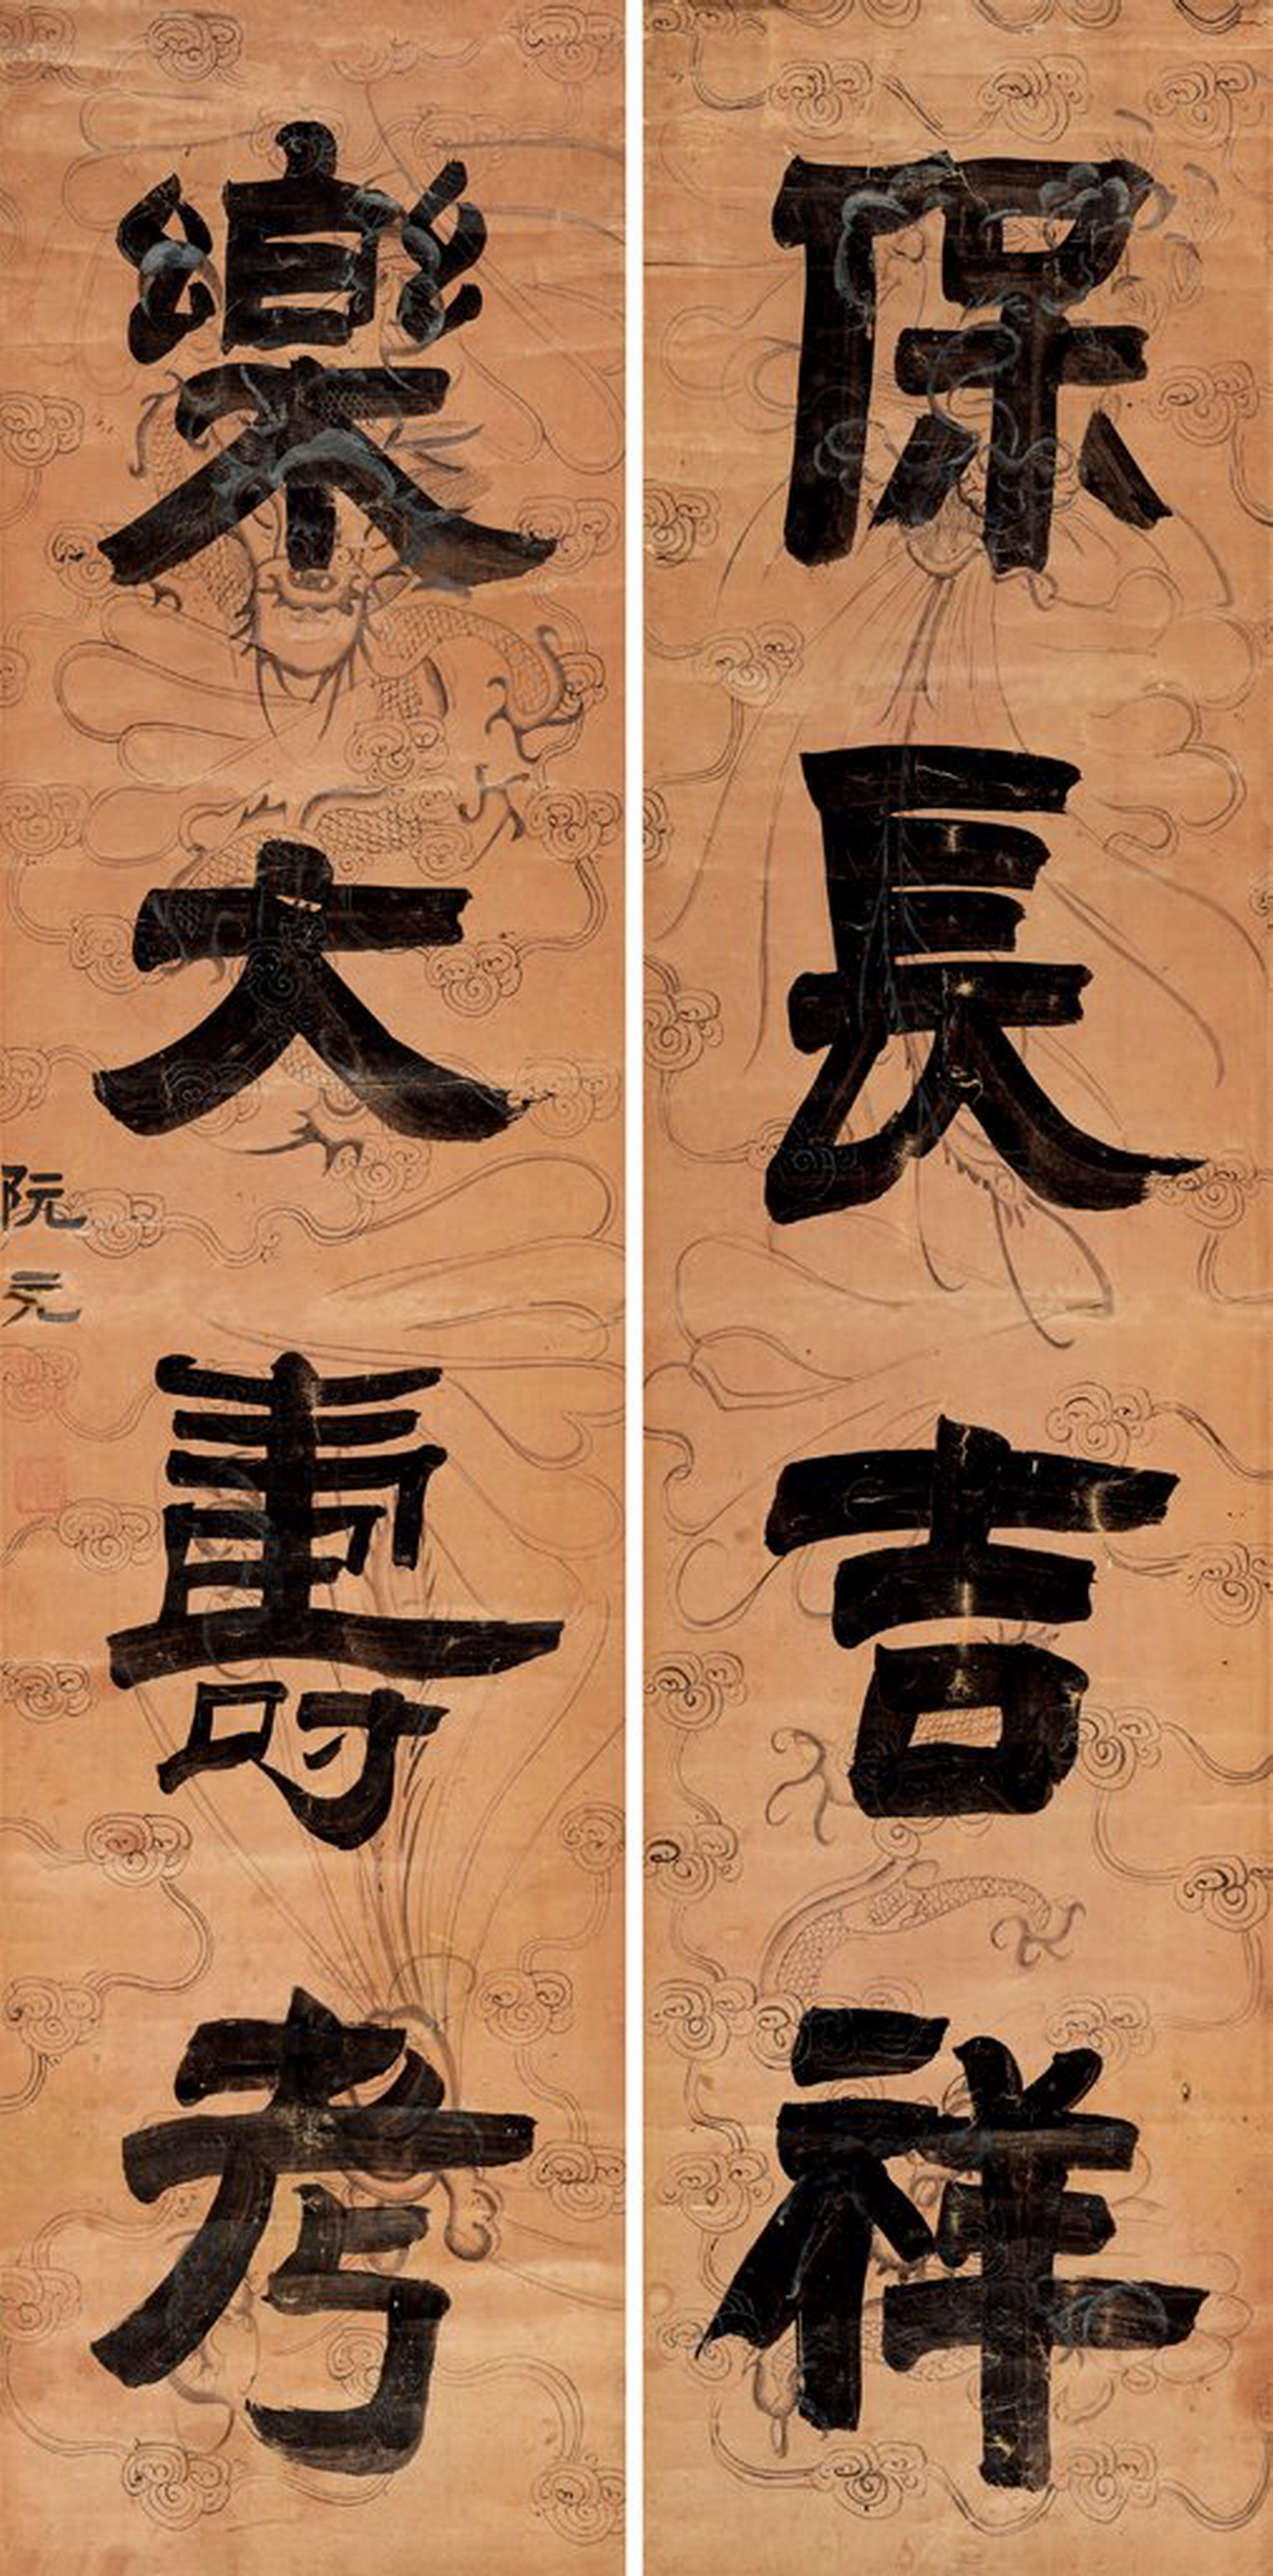 保長吉祥
樂大壽考
阮元